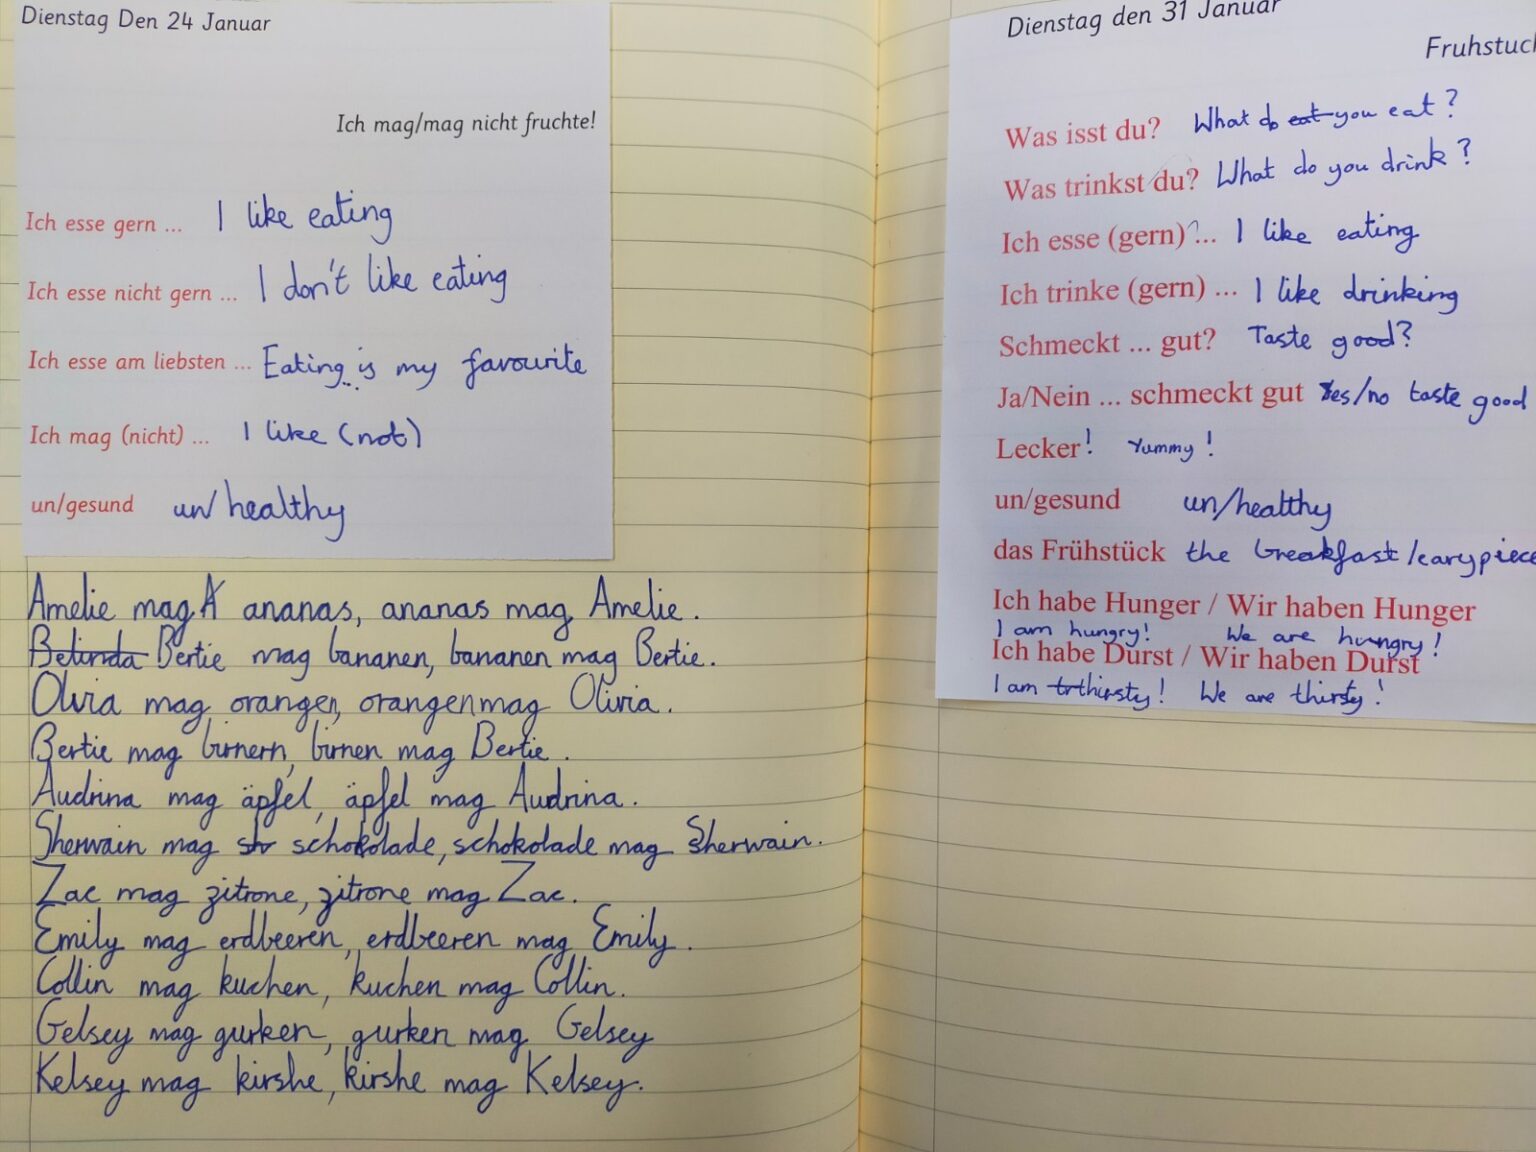 Dienstag Den 24 Januar
Ich mag/mag nicht fruchte!
Ich esse gern ... I like eating
Ich esse nicht gern ... I don't like eating
Ich esse am liebsten ... Eating is my favourite
Ich mag (nicht) ... I like (not)
un/gesund un/healthy
Amelie mag A ananas, ananas mag Amelie.
Belinda Bertie mag bananen, bananen mag Bertie.
Olivia mag orangen, orangen mag Olivia.
Bertie mag birnern, birnen mag Bertie.
Audrina mag äpfel, äpfel mag Audrina.
Sherwain mag sch schokolade, schokolade mag Sherwain.
Zac mag zitrone, zitrone mag Zac.
Emily mag erdbeeren, erdbeeren mag Emily.
Collin mag kuchen, kuchen mag Collin.
Gelsey mag gurken, gurken mag Gelsey
Kelsey mag kirshe, kirshe mag Kelsey.
Dienstag den 31 Januar
Fruhstuck
Was isst du? What do eat you eat?
Was trinkst du? What do you drink?
Ich esse (gern) ... I like eating
Ich trinke (gern) ... I like drinking
Schmeckt ... gut? Taste good?
Ja/Nein ... schmeckt gut Yes/no taste good
Lecker! Yummy!
un/gesund un/healthy
das Frühstück the breakfast/earypiece
Ich habe Hunger / Wir haben Hunger
I am hungry! We are hungry!
Ich habe Durst / Wir haben Durst
I am thirsty! We are thirsty!